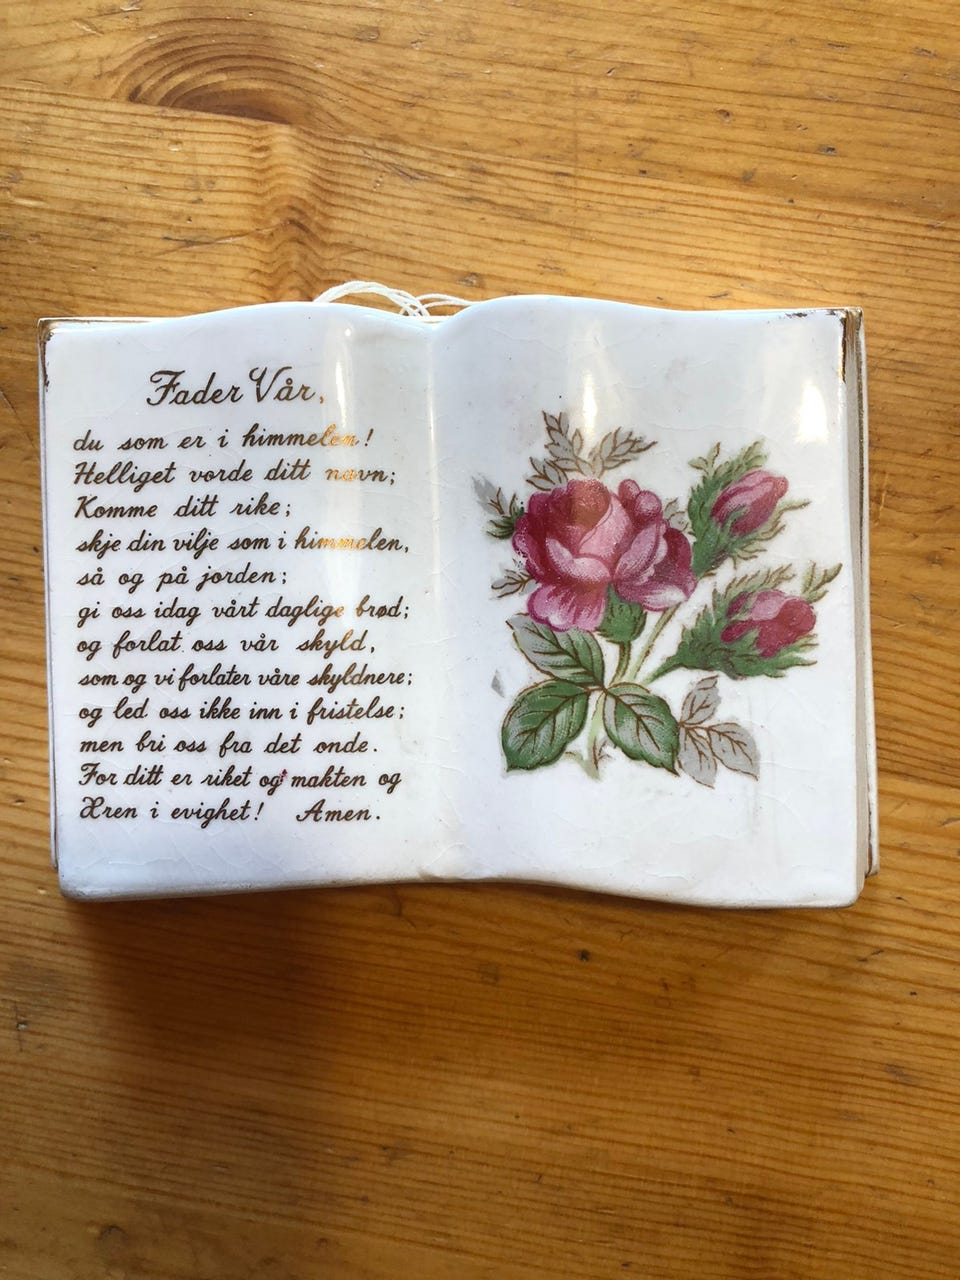 Fader Vår,
du som er i himmelen!
Helliget vorde ditt navn;
Komme ditt rike;
skje din vilje som i himmelen,
så og på jorden;
gi oss idag vårt daglige brød;
og forlat oss vår skyld,
som og vi forlater våre skyldnere;
og led oss ikke inn i fristelse;
men bri oss fra det onde.
For ditt er riket og makten og
Æren i evighet! Amen.